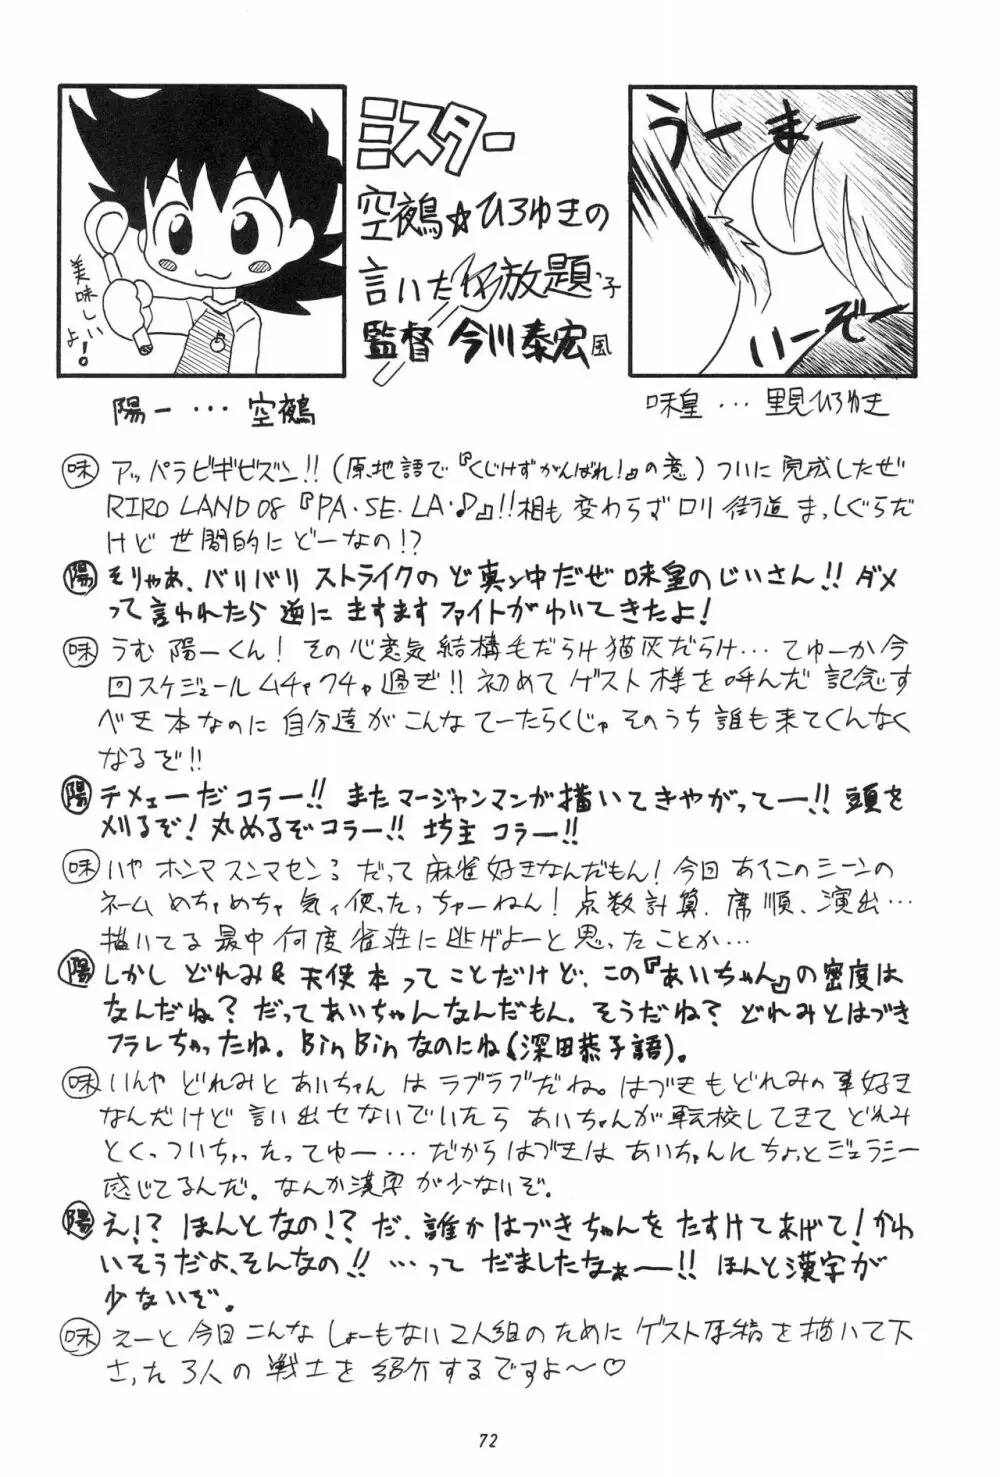 美味しい
よ!
ミスター
空鵺☆ひろゆきの
言いた放題
監督 今川泰宏風
うーまー
いーぞー
陽一…空鵺
味皇…里見ひろゆき
味 アッパラビギビズン!!(原地語で『くじけずがんばれ!』の意)ついに完成したぜ
RIRO LAND 08『PA・SE・LA・♪』!!相も変わらずロリ街道まっしぐらだ
けど世間的にどーなの!?
陽 そりゃあ、バリバリストライクのど真ン中だぜ味皇のじいさん!!ダメ
って言われたら逆にますますファイトがわいてきたよ!
味 うむ陽一くん!その心意気結構毛だらけ猫灰だらけ…てゆーか今
回スケジュールムチャクチャ過ぎ!!初めてゲスト様を呼んだ記念す
べき本なのに自分達がこんなてーたらくじゃそのうち誰も来てくんなく
なるぞ!!
陽 チメェーだコラー!!またマージャンマンが描いてきやがってー!!頭を
刈るぞ!丸めるぞコラー!!坊主コラー!!
味 いやホンマスンマセンろだって麻雀好きなんだもん!今回あそこのシーンの
ネームめちゃめちゃ気ィ使ったっちゃーねん!点数計算、席順、演出…
描いてる最中何度雀荘に逃げよーと思ったことか…
陽 しかしどれみ&天使本ってことだけど、この『あいちゃん』の密度は
なんだね?だってあいちゃんなんだもん。そうだね?どれみとはづき
フラレちゃったね。BinBinなのにね(深田恭子語)。
味 いんやどれみとあいちゃんはラブラブだね。はづきもどれみの事好き
なんだけど言い出せないでいたらあいちゃんが転校してきてどれみ
とくっついちゃったってゆー…だからはづきはあいちゃんにちょっとジェラシー
感じてるんだ。なんか漢字が少ないぞ。
陽 え!?ほんとなの!?だ、誰かはづきちゃんをたすけてあげて!かわ
いそうだよ、そんなの!!…ってだましたなぁー!!ほんと漢字が
少ないぞ。
味 えーと今回こんなしょーもない2人組のためにゲスト原稿を描いて下
さった3人の戦士を紹介するですよ〜♡
72